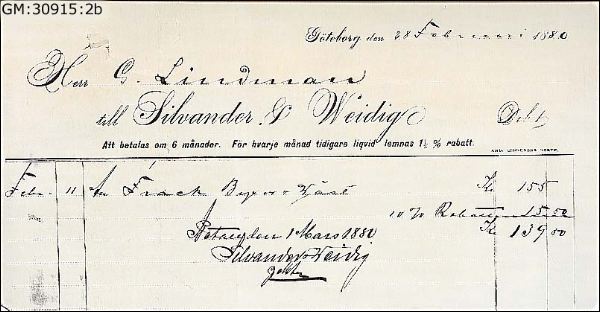 GM:30915:2b
Göteborg den 28 Februari 1880
Herr G. Lindman
till Silvander & Weidig Debet
Att betalas om 6 månader. För hvarje månad tidigare liqvid lemnas 1½ % rabatt.
Febr. 11 An Frack Byxor o Väst Kr 155
10 % Rabatt 15.50
Kr 139.50
Betalt den 1 Mars 1880
Silvander Weidig